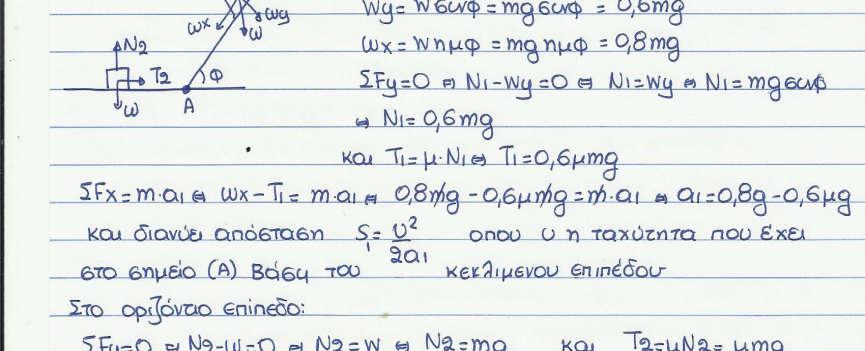 Wy = Wσυνφ = mgσυνφ = 0,6mg
ωx ωy
ω
ωx = Wημφ = mgημφ = 0,8mg
N2
T2 φ
ΣFy=0 ⇔ N1-Wy=0 ⇔ N1=Wy ⇔ N1=mgσυνφ
ω A
⇔ N1=0,6mg
και T1=μ·N1 ⇔ T1=0,6μmg
ΣFx=m·a1 ⇔ ωx-T1=m·a1 ⇔ 0,8mg-0,6μmg=m·a1 ⇔ a1=0,8g-0,6μg
και διανύει απόσταση S1=υ²/2a1 οπου υ η ταχύτητα που έχει
στο σημείο (Α) βάση του κεκλιμενου επιπέδου
Στο οριζόντιο επίπεδο:
ΣFy=0 ⇔ N2-W=0 ⇔ N2=W ⇔ N2=mg και T2=μN2=μmg